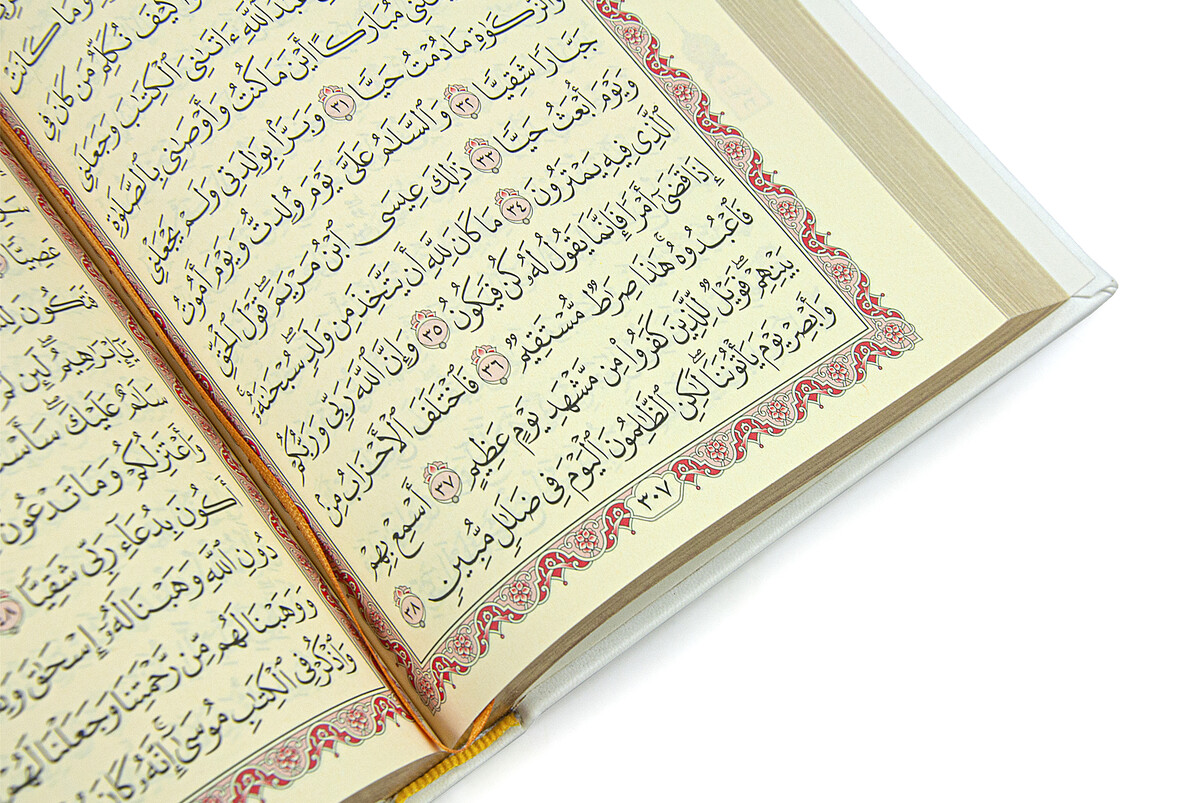 وَمَا كَانَتْ
كَيْفَ نُكَلِّمُ مَن كَانَ فِي
عَبْدُ ٱللَّهِ ءَاتَىٰنِيَ ٱلْكِتَٰبَ وَجَعَلَنِي
مُبَارَكًا أَيْنَ مَا كُنتُ وَأَوْصَٰنِي بِٱلصَّلَوٰةِ
وَٱلزَّكَوٰةِ مَا دُمْتُ حَيًّا ٣١ وَبَرًّۢا بِوَٰلِدَتِي وَلَمْ يَجْعَلْنِي
جَبَّارًا شَقِيًّا ٣٢ وَٱلسَّلَٰمُ عَلَيَّ يَوْمَ وُلِدتُّ وَيَوْمَ أَمُوتُ
وَيَوْمَ أُبْعَثُ حَيًّا ٣٣ ذَٰلِكَ عِيسَى ٱبْنُ مَرْيَمَ ۚ قَوْلَ ٱلْحَقِّ
ٱلَّذِي فِيهِ يَمْتَرُونَ ٣٤ مَا كَانَ لِلَّهِ أَن يَتَّخِذَ مِن وَلَدٍ ۖ سُبْحَٰنَهُۥٓ ۚ
إِذَا قَضَىٰٓ أَمْرًا فَإِنَّمَا يَقُولُ لَهُۥ كُن فَيَكُونُ ٣٥ وَإِنَّ ٱللَّهَ رَبِّي وَرَبُّكُمْ
فَٱعْبُدُوهُ ۚ هَٰذَا صِرَٰطٌ مُّسْتَقِيمٌ ٣٦ فَٱخْتَلَفَ ٱلْأَحْزَابُ مِنۢ
بَيْنِهِمْ ۖ فَوَيْلٌ لِّلَّذِينَ كَفَرُوا۟ مِن مَّشْهَدِ يَوْمٍ عَظِيمٍ ٣٧ أَسْمِعْ بِهِمْ
وَأَبْصِرْ يَوْمَ يَأْتُونَنَا ۖ لَٰكِنِ ٱلظَّٰلِمُونَ ٱلْيَوْمَ فِي ضَلَٰلٍ مُّبِينٍ ٣٨
٣٠٧
عَصِيًّا
فَتَكُونَ
يَٰٓإِبْرَٰهِيمُ ۖ لَئِن
سَلَٰمٌ عَلَيْكَ ۖ
وَأَعْتَزِلُكُمْ وَمَا تَدْعُونَ
أَكُونَ بِدُعَآءِ رَبِّي شَقِيًّا ٤٨
دُونِ ٱللَّهِ وَهَبْنَا لَهُۥٓ إِسْحَٰقَ
وَوَهَبْنَا لَهُم مِّن رَّحْمَتِنَا وَجَعَلْنَا لَهُمْ
وَٱذْكُرْ فِي ٱلْكِتَٰبِ مُوسَىٰٓ ۚ إِنَّهُۥ كَانَ